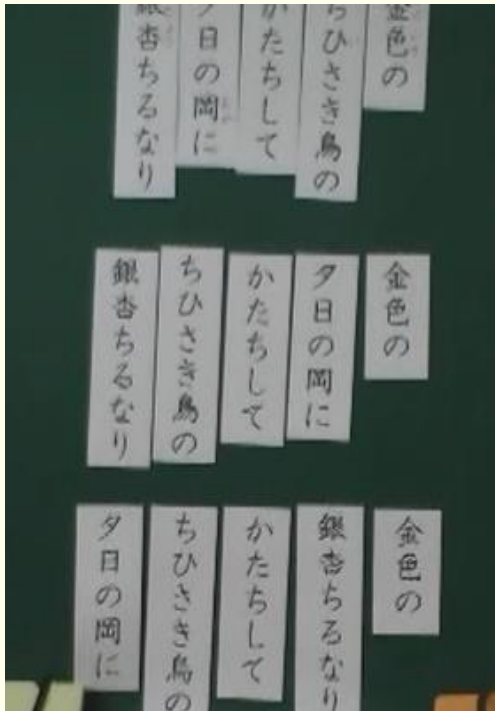 金色の
ちひさき鳥の
かたちして
夕日の岡に
銀杏ちるなり
金色の
夕日の岡に
かたちして
ちひさき鳥の
銀杏ちるなり
金色の
銀杏ちるなり
かたちして
ちひさき鳥の
夕日の岡に